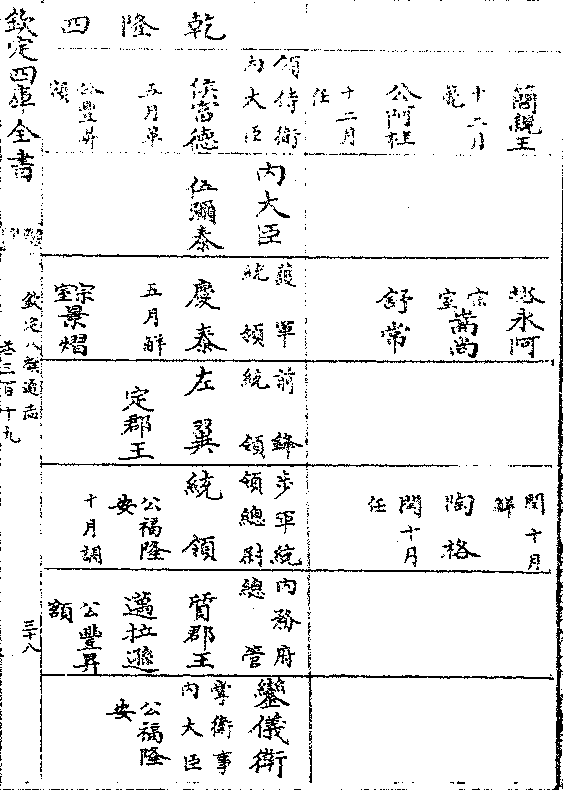 簡親王
十二月
薨
公阿桂
十二月
任
塔永阿
宗室嵩尚
舒常
閏十月
解
陶格
閏十月
任
乾隆四
領侍衛
內大臣
侯富德
五月卒
公豐昇
額
內大臣
伍彌泰
護軍
統領
慶泰
五月解
宗室景熠
前鋒
統領
左翼
定郡王
步軍統
領總尉
統領
公福隆
安
十月調
內務府
總管
質郡王
邁拉遜
公豐昇
額
鑾儀衛
掌衛事
內大臣
公福隆
安
欽定四庫全書
欽定八旗通志
卷三百十九
三十八